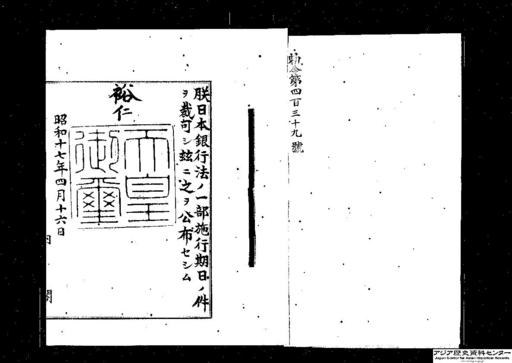 勅令第四百三十九號
朕日本銀行法ノ一部施行期日ノ件
ヲ裁可シ玆ニ之ヲ公布セシム
裕仁
天皇
御璽
昭和十七年四月十六日
内閣
アジア歴史資料センター
Japan Center for Asian Historical Records